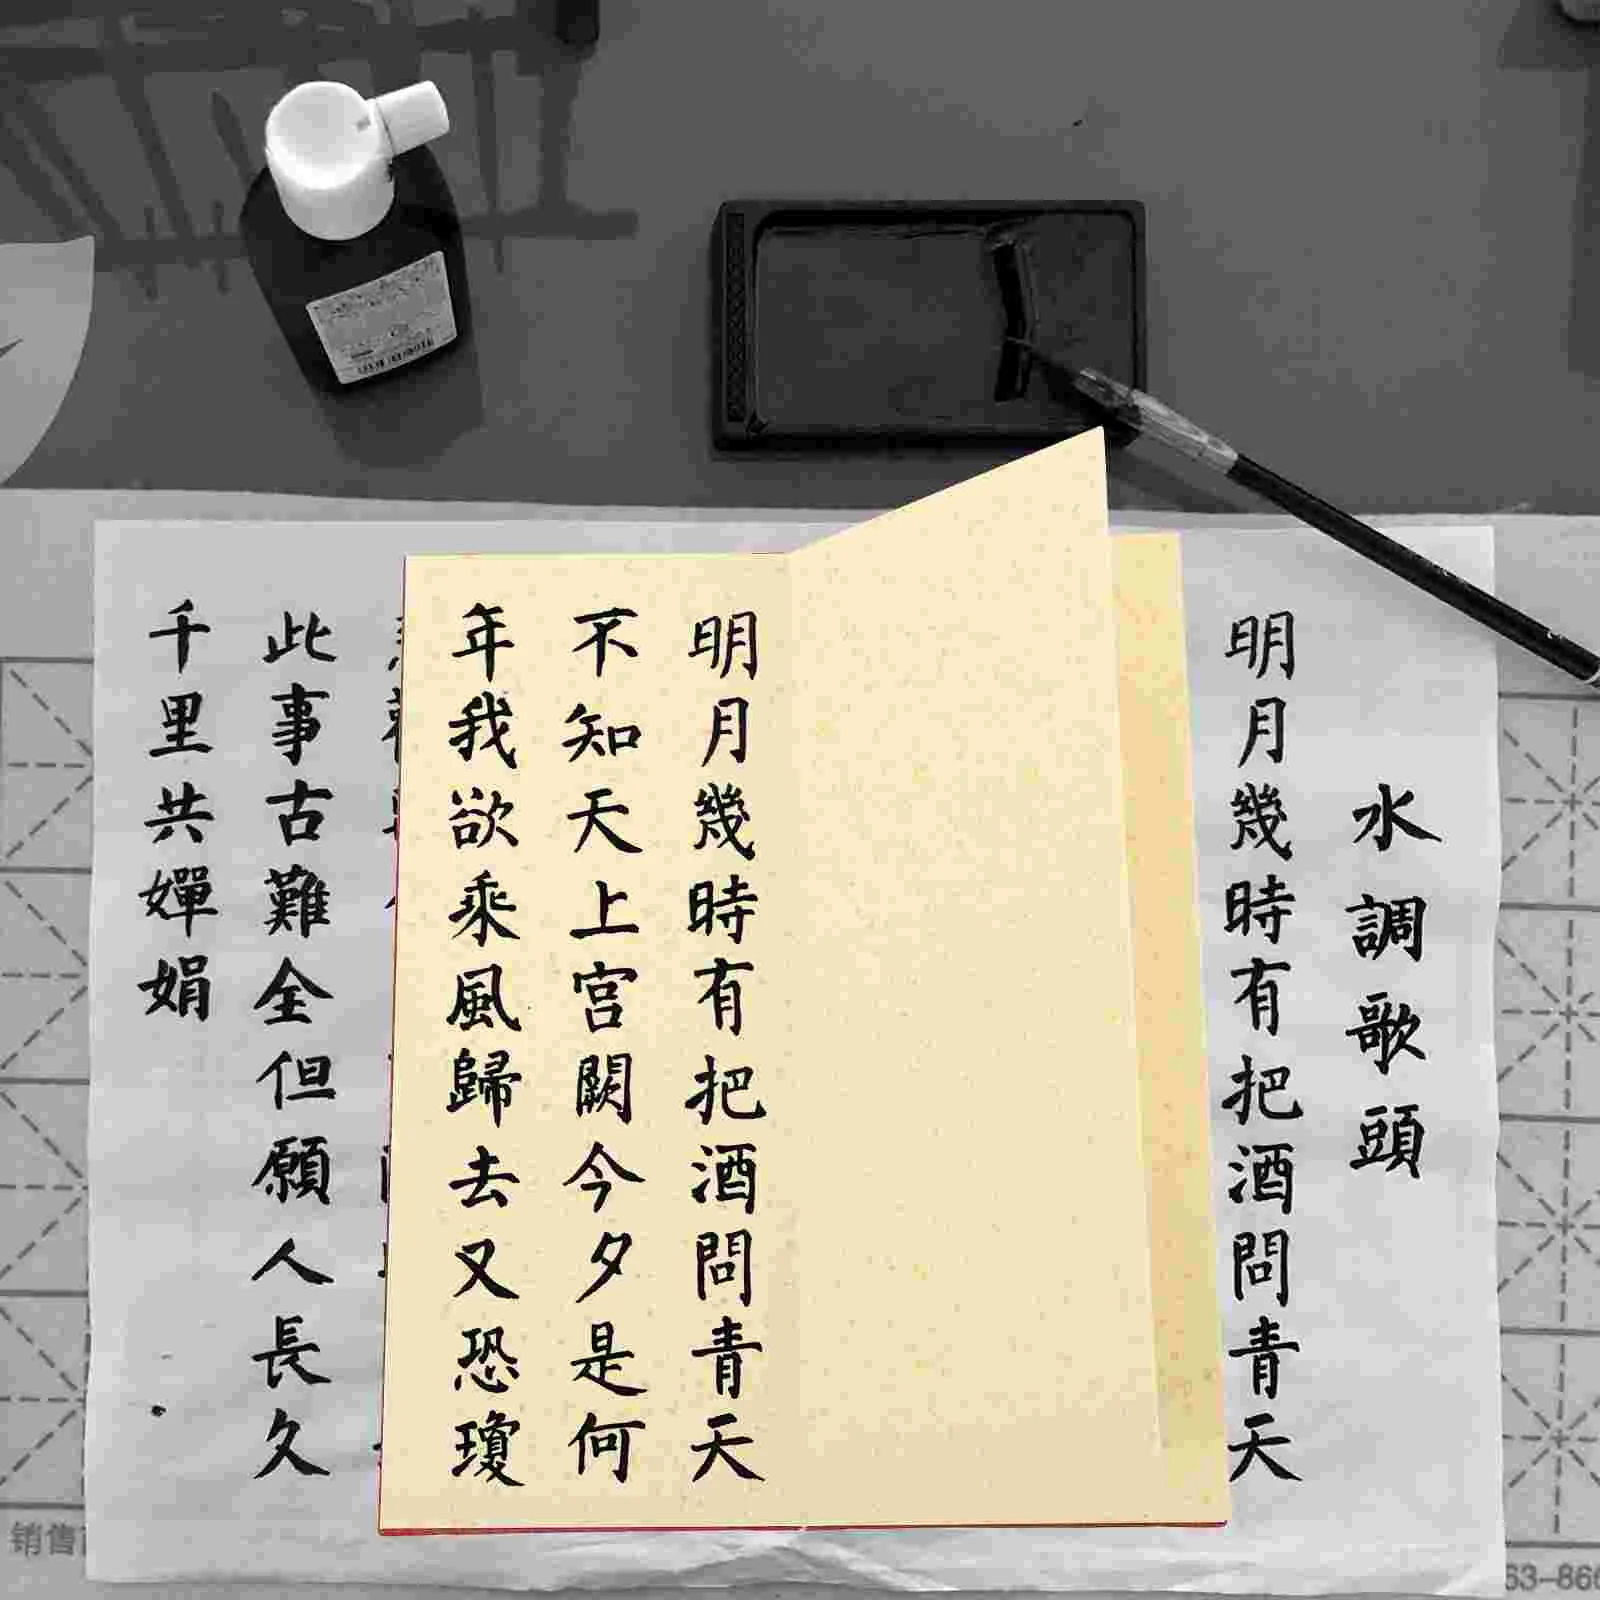 水調歌頭
明月幾時有把酒問青天
明月幾時有把酒問青天
不知天上宫闕今夕是何
年我欲乘風歸去又恐瓊
此事古難全但願人長久
千里共嬋娟
销售
63-866